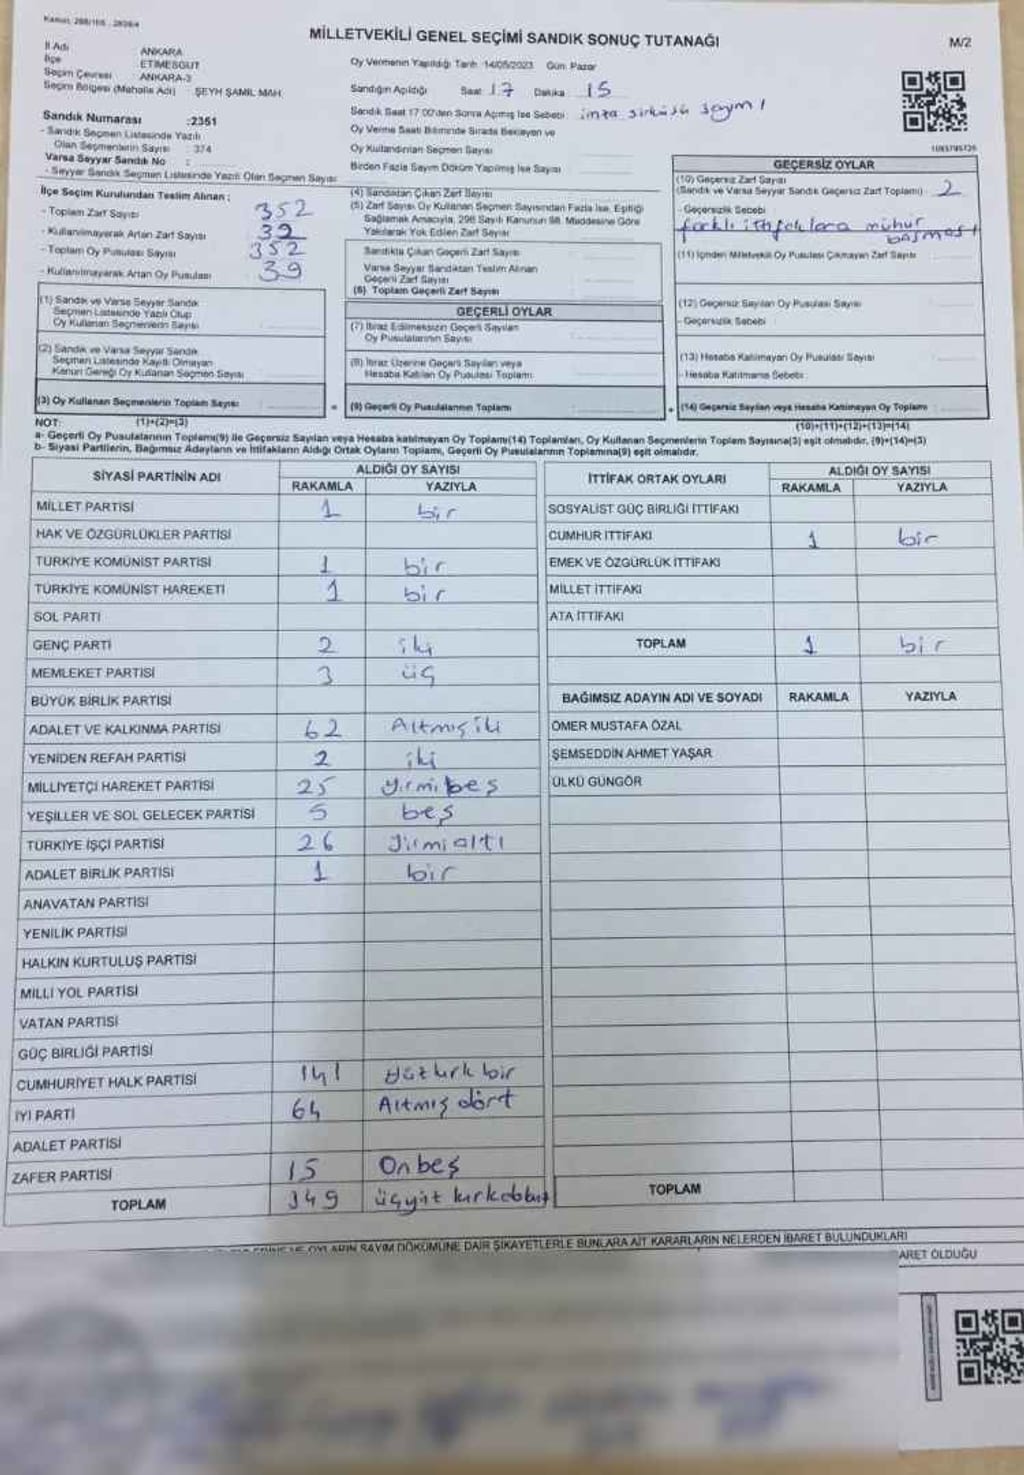 MİLLETVEKİLİ GENEL SEÇİMİ SANDIK SONUÇ TUTANAĞI
M/2
İl Adı ANKARA
İlçe ETİMESGUT
Seçim Çevresi ANKARA-3
Seçim Bölgesi (Mahalle Adı) : ŞEYH ŞAMİL MAH.
Sandık Numarası :2351
- Sandık Seçmen Listesinde Yazılı
Olan Seçmenlerin Sayısı : 374
Varsa Seyyar Sandık No :
- Seyyar Sandık Seçmen Listesinde Yazılı Olan Seçmen Sayısı
Oy Vermenin Yapıldığı Tarih 14/05/2023 Gün: Pazar
Sandığın Açıldığı Saat 17 Dakika 15
Sandık Saat 17:00'den Sonra Açılmış İse Sebebi: imza sirküsü sayımı
Oy Verme Saati Bitiminde Sırada Bekleyen ve
Oy Kullandırılan Seçmen Sayısı
Birden Fazla Sayım Döküm Yapılmış İse Sayısı
İlçe Seçim Kurulundan Teslim Alınan ;
- Toplam Zarf Sayısı 352
- Kullanılmayarak Artan Zarf Sayısı
- Toplam Oy Pusulası Sayısı 352
- Kullanılmayarak Artan Oy Pusulası 39
(1) Sandık ve Varsa Seyyar Sandık
Seçmen Listesinde Yazılı Olup
Oy Kullanan Seçmenlerin Sayısı
(2) Sandık ve Varsa Seyyar Sandık
Seçmen Listesinde Kayıtlı Olmayan
Kanun Gereği Oy Kullanan Seçmen Sayısı
(3) Oy Kullanan Seçmenlerin Toplam Sayısı
(4) Sandıktan Çıkan Zarf Sayısı
(5) Zarf Sayısı Oy Kullanan Seçmen Sayısından Fazla İse, Eşitliği
Sağlamak Amacıyla, 298 Sayılı Kanunun 98. Maddesine Göre
Yakılarak Yok Edilen Zarf Sayısı
Sandıkta Çıkan Geçerli Zarf Sayısı
Varsa Seyyar Sandıktan Teslim Alınan
Geçerli Zarf Sayısı
(6) Toplam Geçerli Zarf Sayısı
GEÇERLİ OYLAR
(7) İtiraz Edilmeksizin Geçerli Sayılan
Oy Pusulalarının Sayısı
(8) İtiraz Üzerine Geçerli Sayılan veya
Hesaba Katılan Oy Pusulası Toplamı
= (9) Geçerli Oy Pusulalarının Toplamı
GEÇERSİZ OYLAR
(10) Geçersiz Zarf Sayısı
(Sandık ve Varsa Seyyar Sandık Geçersiz Zarf Toplamı) 2
- Geçersizlik Sebebi
farklı ittifaklara mühür
basması
(11) İçinden Milletvekili Oy Pusulası Çıkmayan Zarf Sayısı
(12) Geçersiz Sayılan Oy Pusulası Sayısı
- Geçersizlik Sebebi
(13) Hesaba Katılmayan Oy Pusulası Sayısı
- Hesaba Katılmama Sebebi
+ (14) Geçersiz Sayılan veya Hesaba Katılmayan Oy Toplamı
NOT: (1)+(2)=(3)
(10)+(11)+(12)+(13)=(14)
a- Geçerli Oy Pusulalarının Toplamı(9) ile Geçersiz Sayılan veya Hesaba katılmayan Oy Toplamı(14) Toplamları, Oy Kullanan Seçmenlerin Toplam Sayısına(3) eşit olmalıdır. (9)+(14)=(3)
b- Siyasi Partilerin, Bağımsız Adayların ve İttifakların Aldığı Ortak Oyların Toplamı, Geçerli Oy Pusulalarının Toplamına(9) eşit olmalıdır.
SİYASİ PARTİNİN ADI ALDIĞI OY SAYISI
RAKAMLA YAZIYLA
MİLLET PARTİSİ 1 bir
HAK VE ÖZGÜRLÜKLER PARTİSİ
TÜRKİYE KOMÜNİST PARTİSİ 1 bir
TÜRKİYE KOMÜNİST HAREKETİ 1 bir
SOL PARTİ
GENÇ PARTİ 2 iki
MEMLEKET PARTİSİ 3 üç
BÜYÜK BİRLİK PARTİSİ
ADALET VE KALKINMA PARTİSİ 62 Altmış iki
YENİDEN REFAH PARTİSİ 2 iki
MİLLİYETÇİ HAREKET PARTİSİ 25 yirmi beş
YEŞİLLER VE SOL GELECEK PARTİSİ 5 beş
TÜRKİYE İŞÇİ PARTİSİ 26 yirmi altı
ADALET BİRLİK PARTİSİ 1 bir
ANAVATAN PARTİSİ
YENİLİK PARTİSİ
HALKIN KURTULUŞ PARTİSİ
MİLLİ YOL PARTİSİ
VATAN PARTİSİ
GÜÇ BİRLİĞİ PARTİSİ
CUMHURİYET HALK PARTİSİ 141 yüzkırk bir
İYİ PARTİ 64 Altmış dört
ADALET PARTİSİ
ZAFER PARTİSİ 15 Onbeş
TOPLAM 349 üçyüz kırkdokuz
İTTİFAK ORTAK OYLARI ALDIĞI OY SAYISI
RAKAMLA YAZIYLA
SOSYALİST GÜÇ BİRLİĞİ İTTİFAKI
CUMHUR İTTİFAKI 1 bir
EMEK VE ÖZGÜRLÜK İTTİFAKI
MİLLET İTTİFAKI
ATA İTTİFAKI
TOPLAM 1 bir
BAĞIMSIZ ADAYIN ADI VE SOYADI RAKAMLA YAZIYLA
ÖMER MUSTAFA ÖZAL
ŞEMSEDDİN AHMET YAŞAR
ÜLKÜ GÜNGÖR
TOPLAM
OYLARIN SAYIM DÖKÜMÜNE DAİR ŞİKAYETLERLE BUNLARA AİT KARARLARIN NELERDEN İBARET BULUNDUKLARI
ARET OLDUĞU